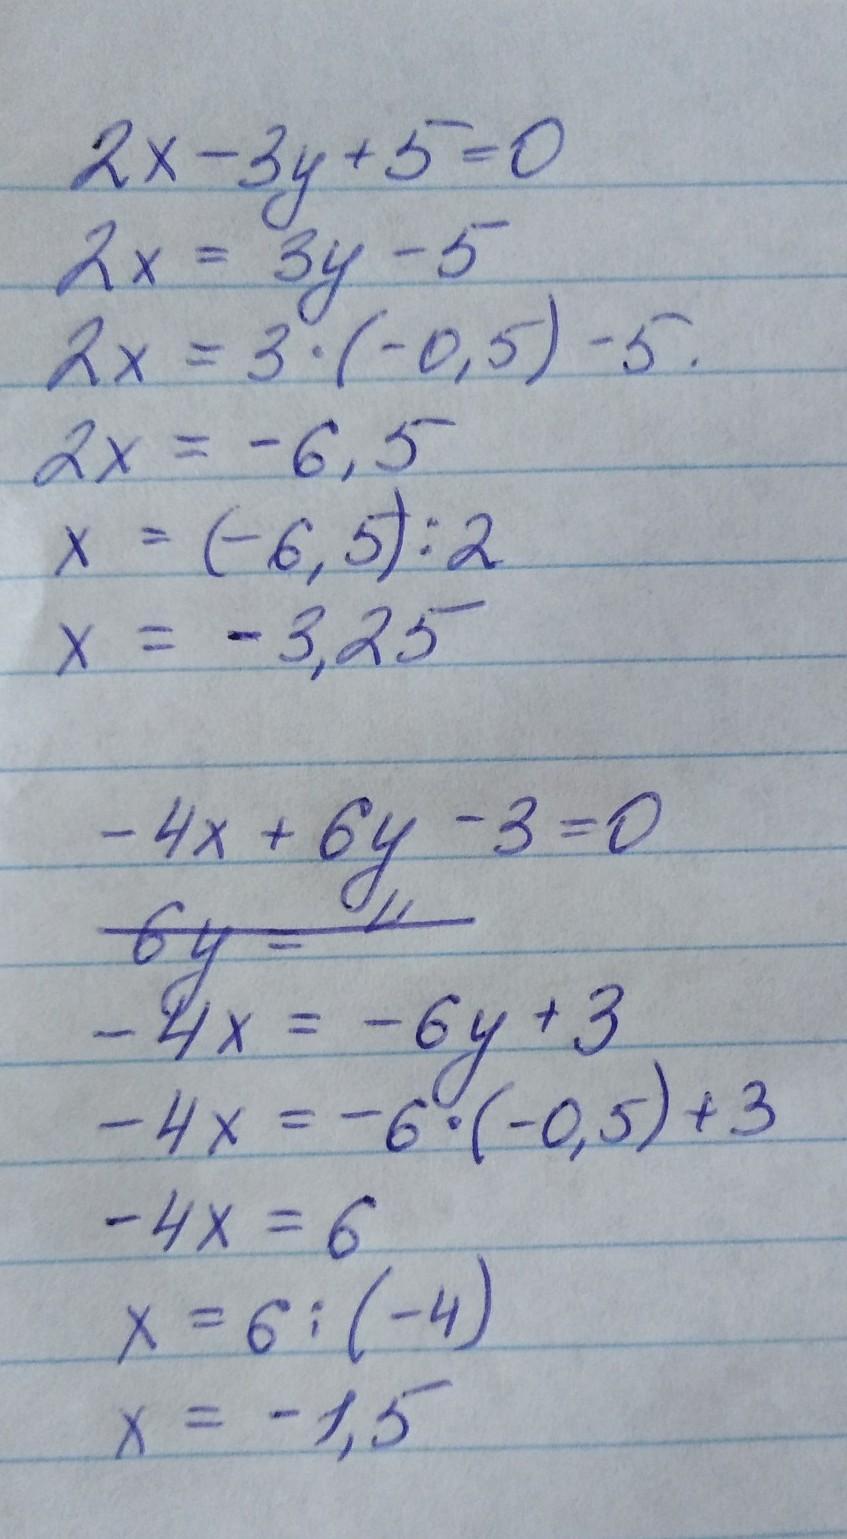 2x-3y+5=0
2x = 3y-5
2x = 3·(-0,5)-5.
2x = -6,5
x = (-6,5):2
x = -3,25
-4x+6y-3=0
6y =
-4x = -6y+3
-4x = -6·(-0,5)+3
-4x = 6
x = 6:(-4)
x = -1,5